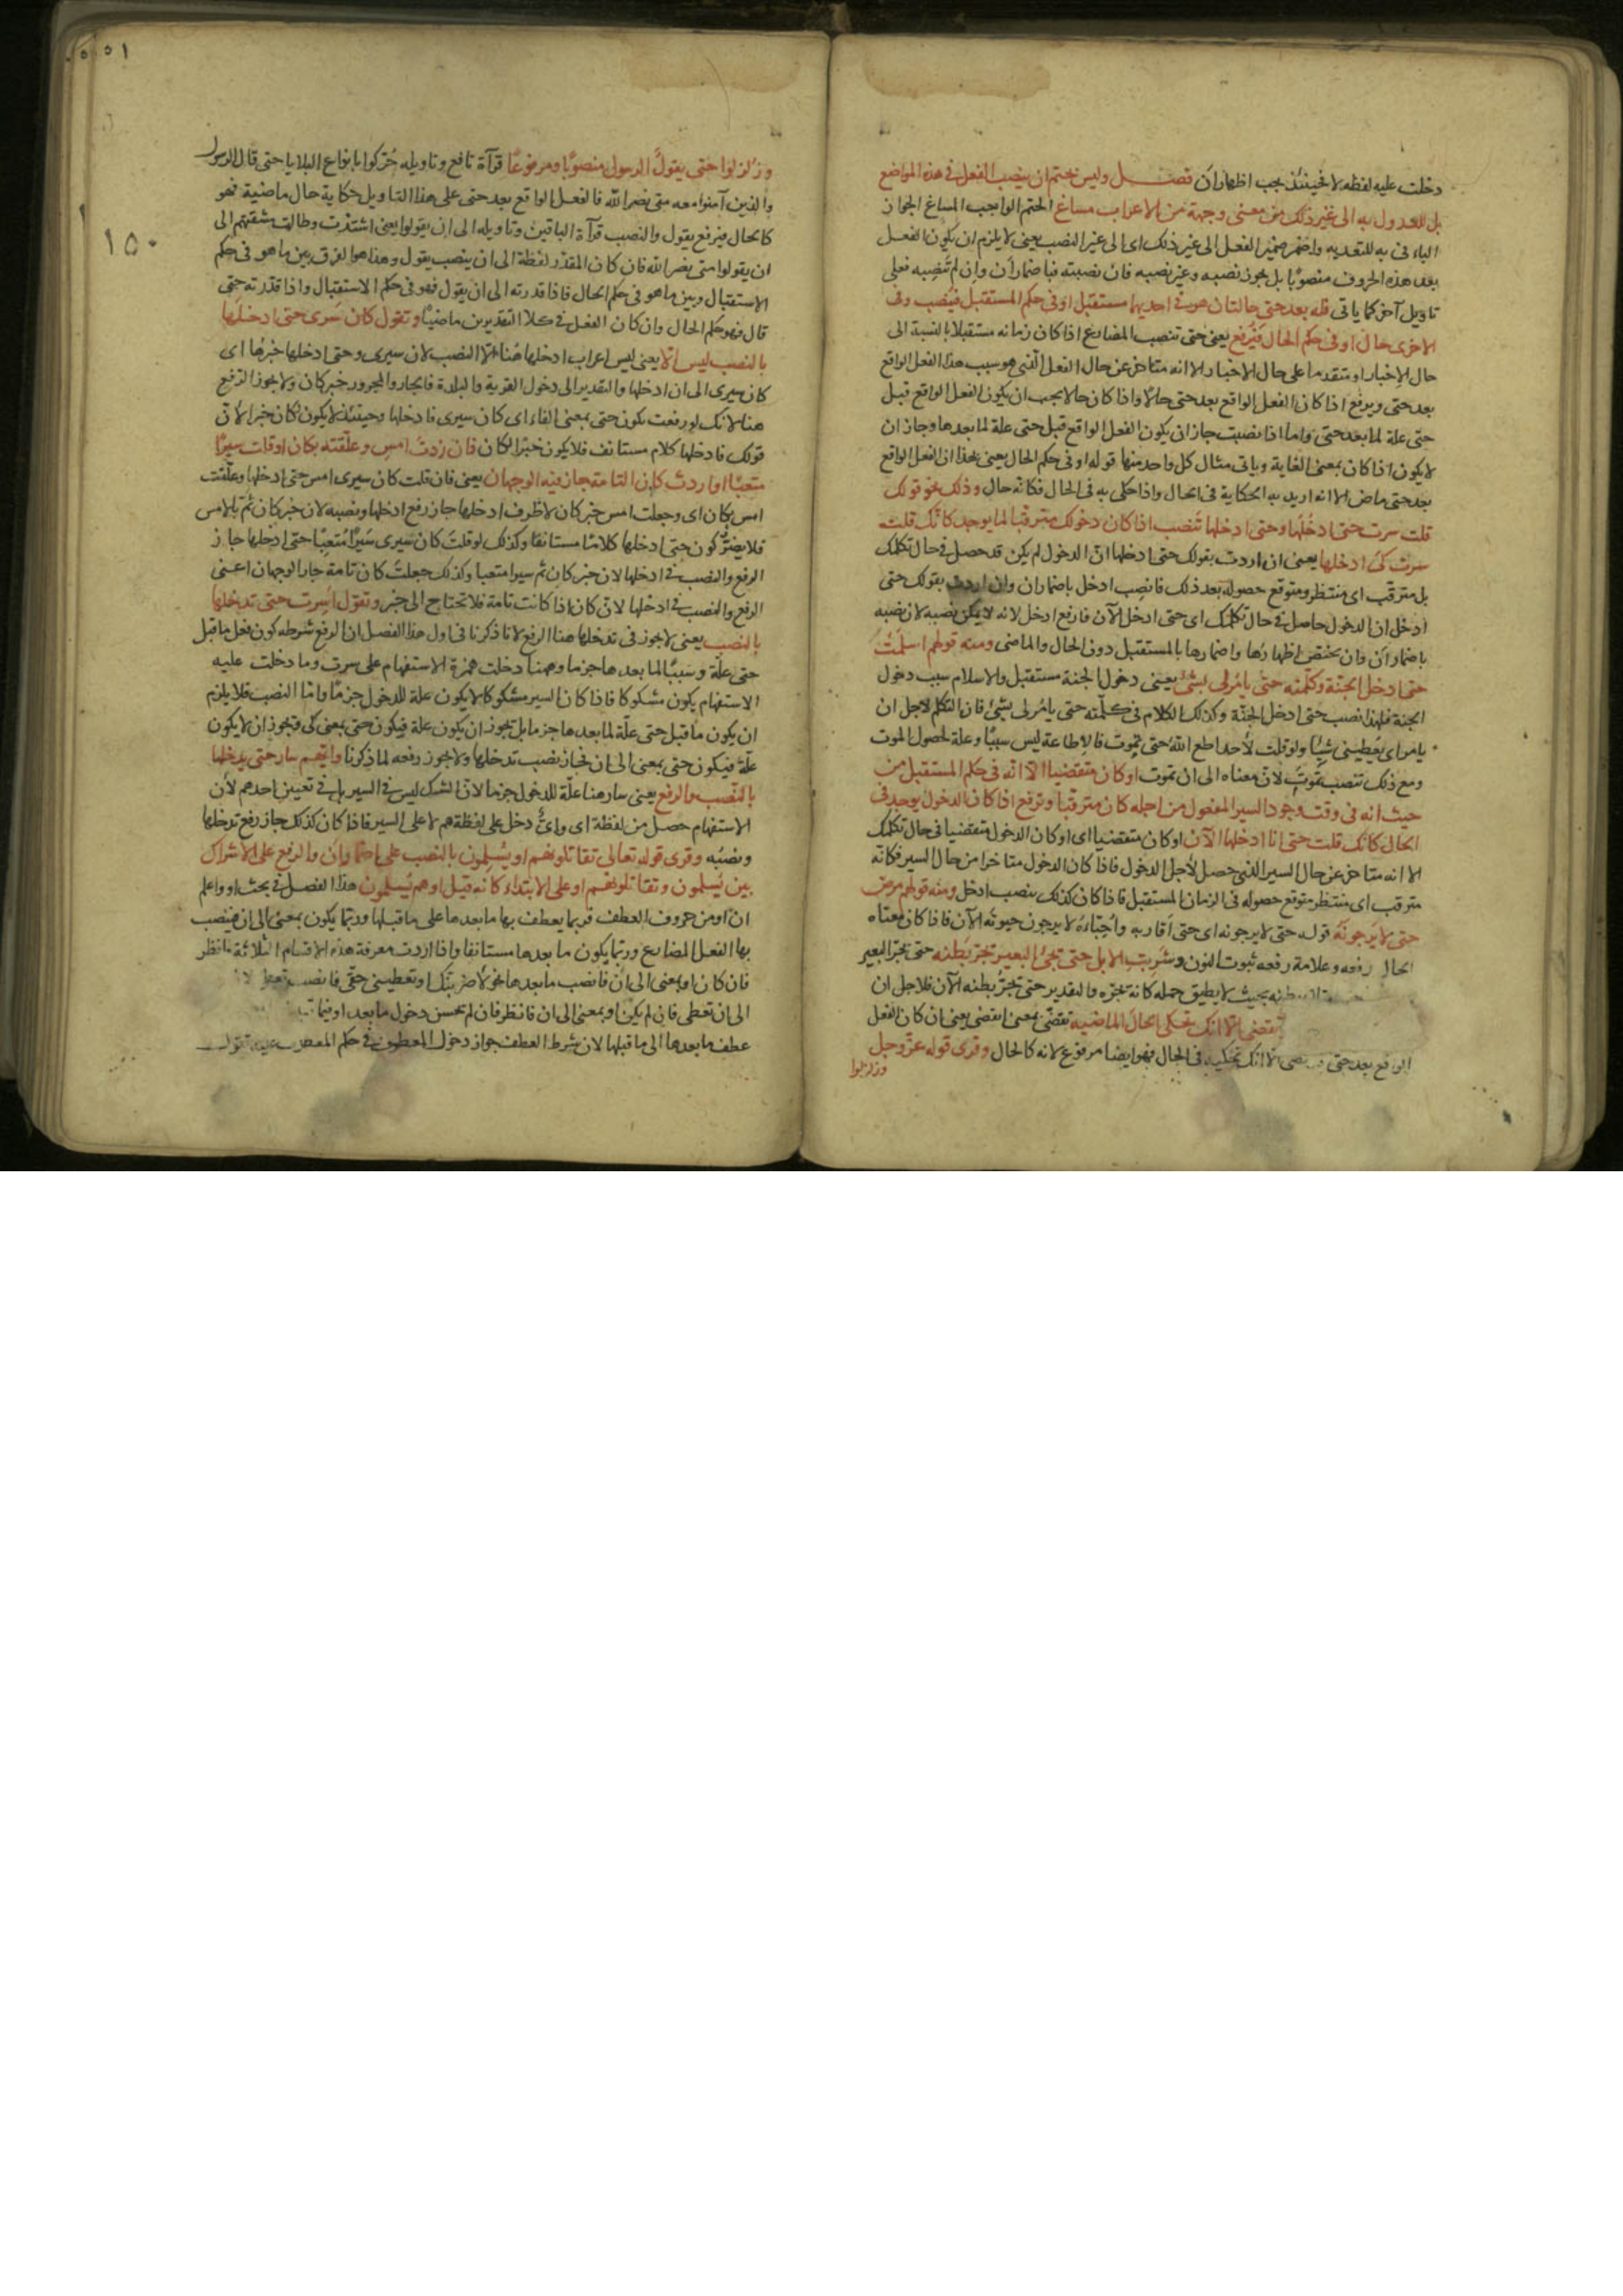 دخلت عليه لفظه لا فحينئذ يجب اظهار ان فصل وليس بحتم ان ينصب الفعل في هذه المواضع
بل للعدول به الى غير ذلك من معنى وجهة من الاعراب مساغ الحتم الواجب المساغ الجواز
الباء في به للتعدية واضمر ضمير الفعل الى غير ذلك اى الى غير النصب يعنى لا يلزم ان يكون الفعل
بعد هذه الحروف منصوبا بل يجوز نصبه وغير نصبه فان نصبته فباضمار ان وان لم تنصبه فعلى
تاويل آخر كما ياتى قله بعد حتى حالتان هو في احديهما مستقبل او في حكم المستقبل فينصب وفى
الاخرى حال او في حكم الحال فيرفع يعنى حتى تنصب المضارع اذا كان زمانه مستقبلا بالنسبة الى
حال الاخبار او متقدما على حال الاخبار الا انه متاخر عن حال الفعل الذى هو سبب هذا الفعل الواقع
بعد حتى ويرفع اذا كان الفعل الواقع بعد حتى حالا واذا كان حالا يجب ان يكون الفعل الواقع قبل
حتى علة لما بعد حتى واما اذا نصبت جاز ان يكون الفعل الواقع قبل حتى علة لما بعدها وجاز ان
لا يكون اذا كان بمعنى الغاية وياتى مثال كل واحد منها قوله او في حكم الحال يعنى بهذا ان الفعل الواقع
بعد حتى ماض الا انه اريد به الحكاية في الحال واذا حكى به في الحال فكانه حال وذلك نحو قولك
قلت سرت حتى ادخلها وحتى ادخلها تنصب اذا كان دخولك مترقبا لما يوجد كانك قلت
سرت كى ادخلها يعنى ان اردت بقولك حتى ادخلها ان الدخول لم يكن قد حصل في حال تكلمك
بل مترقب اى منتظر ومتوقع حصوله بعد ذلك فانصب ادخل باضمار ان وان اردت بقولك حتى
ادخل ان الدخول حاصل في حال تكلمك اى حتى ادخل الآن فارفع ادخل لانه لا يمكن نصبه لان نصبه
باضمار ان وان يختص اظهارها واضمارها بالمستقبل دون الحال والماضى ومنه قولهم اسلمت
حتى ادخل الجنة وكلمته حتى يامر لى بشئ يعنى دخول الجنة مستقبل والاسلام سبب دخول
الجنة فلهذا نصب حتى ادخل الجنة وكذلك الكلام في كلمته حتى يامر لى بشئ فان التكلم لاجل ان
يامر اى يعطينى شيئا ولو قلت لاحد اطع الله حتى تموت فالاطاعة ليس سببا وعلة لحصول الموت
ومع ذلك تنصب تموت لان معناه الى ان تموت او كان متقضيا الا انه في حكم المستقبل من
حيث انه في وقت وجود السير المفعول من اجله كان مترقبا وترفع اذا كان الدخول يوجد في
الحال كانك قلت حتى انا ادخلها الآن او كان متقضيا اى او كان الدخول متقضيا في حال تكلمك
الا انه متاخر عن حال السير الذى حصل لاجل الدخول فاذا كان الدخول متاخرا من حال السير فكانه
مترقب اى منتظر متوقع حصوله في الزمان المستقبل فاذا كان كذلك ينصب ادخل ومنه قولهم مرض
حتى لا يرجونه قوله حتى لا يرجونه اى حتى اقاربه واحباؤه لا يرجون حيوته الآن فاذا كان معناه
الحال رفعه وعلامة رفعه ثبوت النون وشربت الابل حتى يجئ البعير تجر بطنه حتى يجر البعير
بطنه بحيث لا يطيق حمله كانه تجره والتقدير حتى تجر بطنه الآن فلاجل ان
تقضى الا انك تحكى الحال الماضية تقضى بمعنى انقضى يعنى ان كان الفعل
الواقع بعد حتى الا انك تحكيه في الحال فهو ايضا مرفوع لانه كالحال وقرى قوله عز وجل
وزلزلوا
٠٥٠٥١
١٥٠
وزلزلوا حتى يقول الرسول منصوبا ومرفوعا قرآة نافع وتاويله حركوا بانواع البلايا حتى قال الرسول
والذين آمنوا معه متى نصر الله فالفعل الواقع بعد حتى على هذا التاويل حكاية حال ماضية فهو
كالحال فيرفع يقول والنصب قرآة الباقين وتاويله الى ان يقولوا يعنى اشتدت وطالت مشقتهم الى
ان يقولوا متى نصر الله فان كان المقدر لفظة الى ان ينصب يقول وهذا هو الفرق بين ما هو في حكم
الاستقبال وبين ما هو في حكم الحال فاذا قدرته الى ان يقول فهو في حكم الاستقبال واذا قدرته حتى
قال فهو حكم الحال وان كان الفعل في كلا التقديرين ماضيا وتقول كان سرى حتى ادخلها
بالنصب ليس الا يعنى ليس اعراب ادخلها هنا الا النصب لان سيرى وحتى ادخلها خبرها اى
كان سيرى الى ان ادخلها والتقدير الى دخول القرية والبلدة فالجار والمجرور خبر كان ولا يجوز الرفع
هنا لانك لو رفعت يكون حتى بمعنى الفاء اى كان سيرى فادخلها وحينئذ لا يكون لكان خبر الا ان
قولك فادخلها كلام مستانف فلا يكون خبرا لكان فان زدت امس وعلقته بكان او قلت سيرا
متعبا او اردت كان التامة جاز فيه الوجهان يعنى فان قلت كان سيرى امس حتى ادخلها وعلقت
امس بكان اى وجعلت امس خبر كان لا ظرف ادخلها جاز رفع ادخلها ونصبه لان خبر كان ثم بالامس
فلا يضر كون حتى ادخلها كلاما مستانفا وكذلك لو قلت كان سيرى سيرا متعبا حتى ادخلها جاز
الرفع والنصب في ادخلها لان خبر كان ثم سيرا متعبا وكذلك جعلت كان تامة جاز الوجهان اعنى
الرفع والنصب في ادخلها لان كان اذا كانت تامة فلا تحتاج الى خبر وتقول اسرت حتى تدخلها
بالنصب يعنى لا يجوز في تدخلها هنا الرفع لانا ذكرنا في اول هذا الفصل ان الرفع شرطه كون فعل ما قبل
حتى علة وسببا لما بعدها جزما وههنا دخلت همزة الاستفهام على سرت وما دخلت عليه
الاستفهام يكون مشكوكا فاذا كان السير مشكوكا لا يكون علة للدخول جزما واما النصب فلا يلزم
ان يكون ما قبل حتى علة لما بعدها جزما بل يجوز ان يكون علة فيكون حتى بمعنى كى ويجوز ان لا يكون
علة فيكون حتى بمعنى الى ان فجاز نصب تدخلها ولا يجوز رفعه لما ذكرنا وايهم سار حتى يدخلها
بالنصب والرفع يعنى سار هنا علة للدخول جزما لان الشك ليس في السير بل في تعيين احدهم لان
الاستفهام حصل من لفظة اى واى دخل على لفظة هم لا على السير فاذا كان كذلك جاز رفع تدخلها
ونصبه وقرى قوله تعالى تقاتلونهم او يسلمون بالنصب على اضمار ان والرفع على الاشراك
بين يسلمون وتقاتلونهم او على الابتداء كانه قيل او هم يسلمون هذا الفصل في بحث او واعلم
ان او من حروف العطف فربما يعطف بها ما بعدها على ما قبلها وربما يكون بمعنى الى ان فينصب
بها الفعل المضارع وربما يكون ما بعدها مستانفا واذا اردت معرفة هذه الاقسام الثلاثة فانظر
فان كان او بمعنى الى ان فانصب ما بعدها نحو لاضربنك او تعطينى حقى فانصب
الى ان تعطى فان لم يكن او بمعنى الى ان فانظر فان لم يحسن دخول ما بعد او فيما
عطف ما بعدها الى ما قبلها لان شرط العطف جواز دخول المعطوف في حكم المعطوف عليه تقول